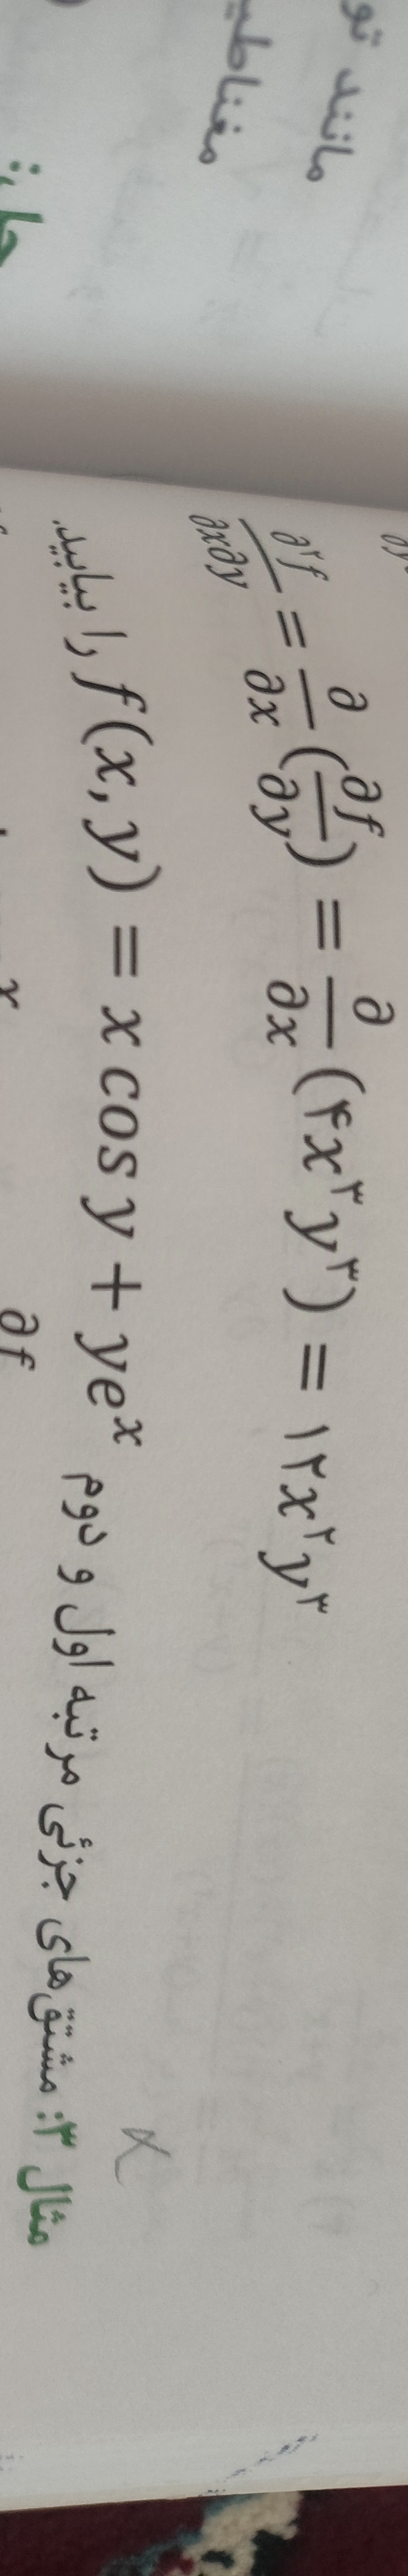 مانند تو
مغناطی
∂²f/∂x∂y = ∂/∂x (∂f/∂y) = ∂/∂x (۴x³y³) = ۱۲x²y³
مثال ۳: مشتق‌های جزئی مرتبه اول و دوم f(x, y) = x cos y + ye^x را بیابید.
حل:
∂f